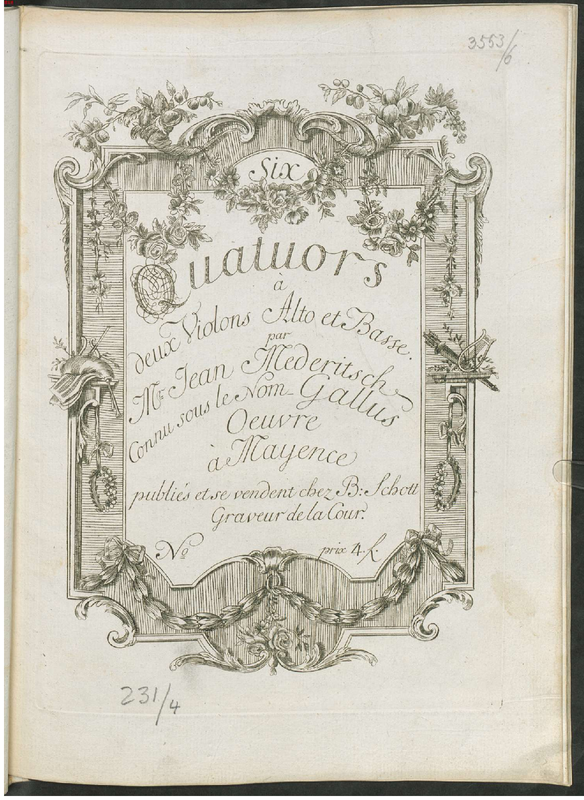 3553/6
Six
Quatuors
à
deux Violons Alto et Basse.
par
Mr. Jean Mederitsch
Connu sous le Nom Gallus
Oeuvre
à Mayence
publiés et se vendent chez B: Schott
Graveur de la Cour.
No prix 4 f.
231/4